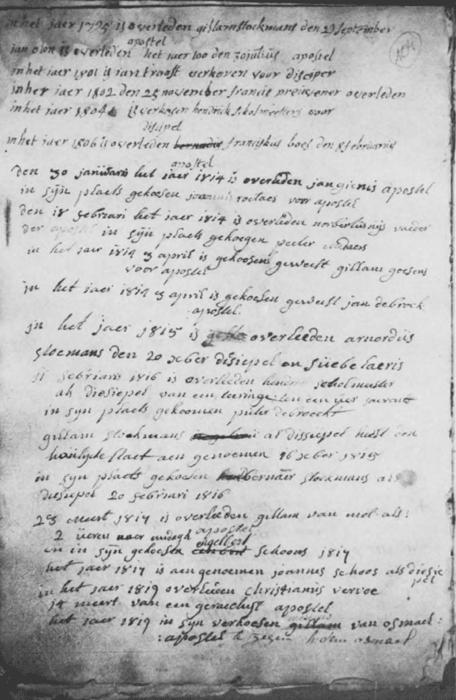 in het jaer 1795 is overleden gillam stockmans den 29 september
apostel
jan oion is overleden het jaer 100 den 30 julius apostel
in het iaer 1801 is ian traost verkoren voor disciper
in her iaer 1802 den 25 november francis overleden
in het iaer 1804 is verkosen hendrick scholmeesters voor
discipel
in het iaer 1806 is overleden franciskus boes den 8 februarius
apostel
den 30 januwaris het jaer 1814 is overleden jan gienis apostel
in sijn plaets gekoesen joannis roelaes voor apostel
den 18 febriari het jaer 1814 is overleden norbertus
der in sijn plaets gekoegen peeter
in het jaer 1814 3 april is gekoesen geweest gillam goesens
voor apostel
in het iaer 1814 3 april is gekoesen geweest jan de brock
apostel
in het jaer 1815 is overleeden arnordus
stoemans den 20 xber disiepel en
11 febriaris 1816 is overleeden hendric scholmester
als diesiepel van een
in sijn plaets gekoomen de broeckt
gillam stockmans al dissiepel heest den
houlycke staet aen genoemen 16 xcber 1815
in syn plaets gekoesen bernaer stockmans als
diesiepel 20 febriuari 1816
23 meert 1817 is overleeden gillam van mol als
2 ueren naer midagh apostel
en in sijn gekoesen engelbert schoons 1817
het jaer 1817 is aengenoemen joannus schoos als diesie
pel
in het iaer 1819 overleeden christianus vervoe
14 meert van een apostel
het jaer 1819 in syn verkoesen van osmael:
: apostel te osmael